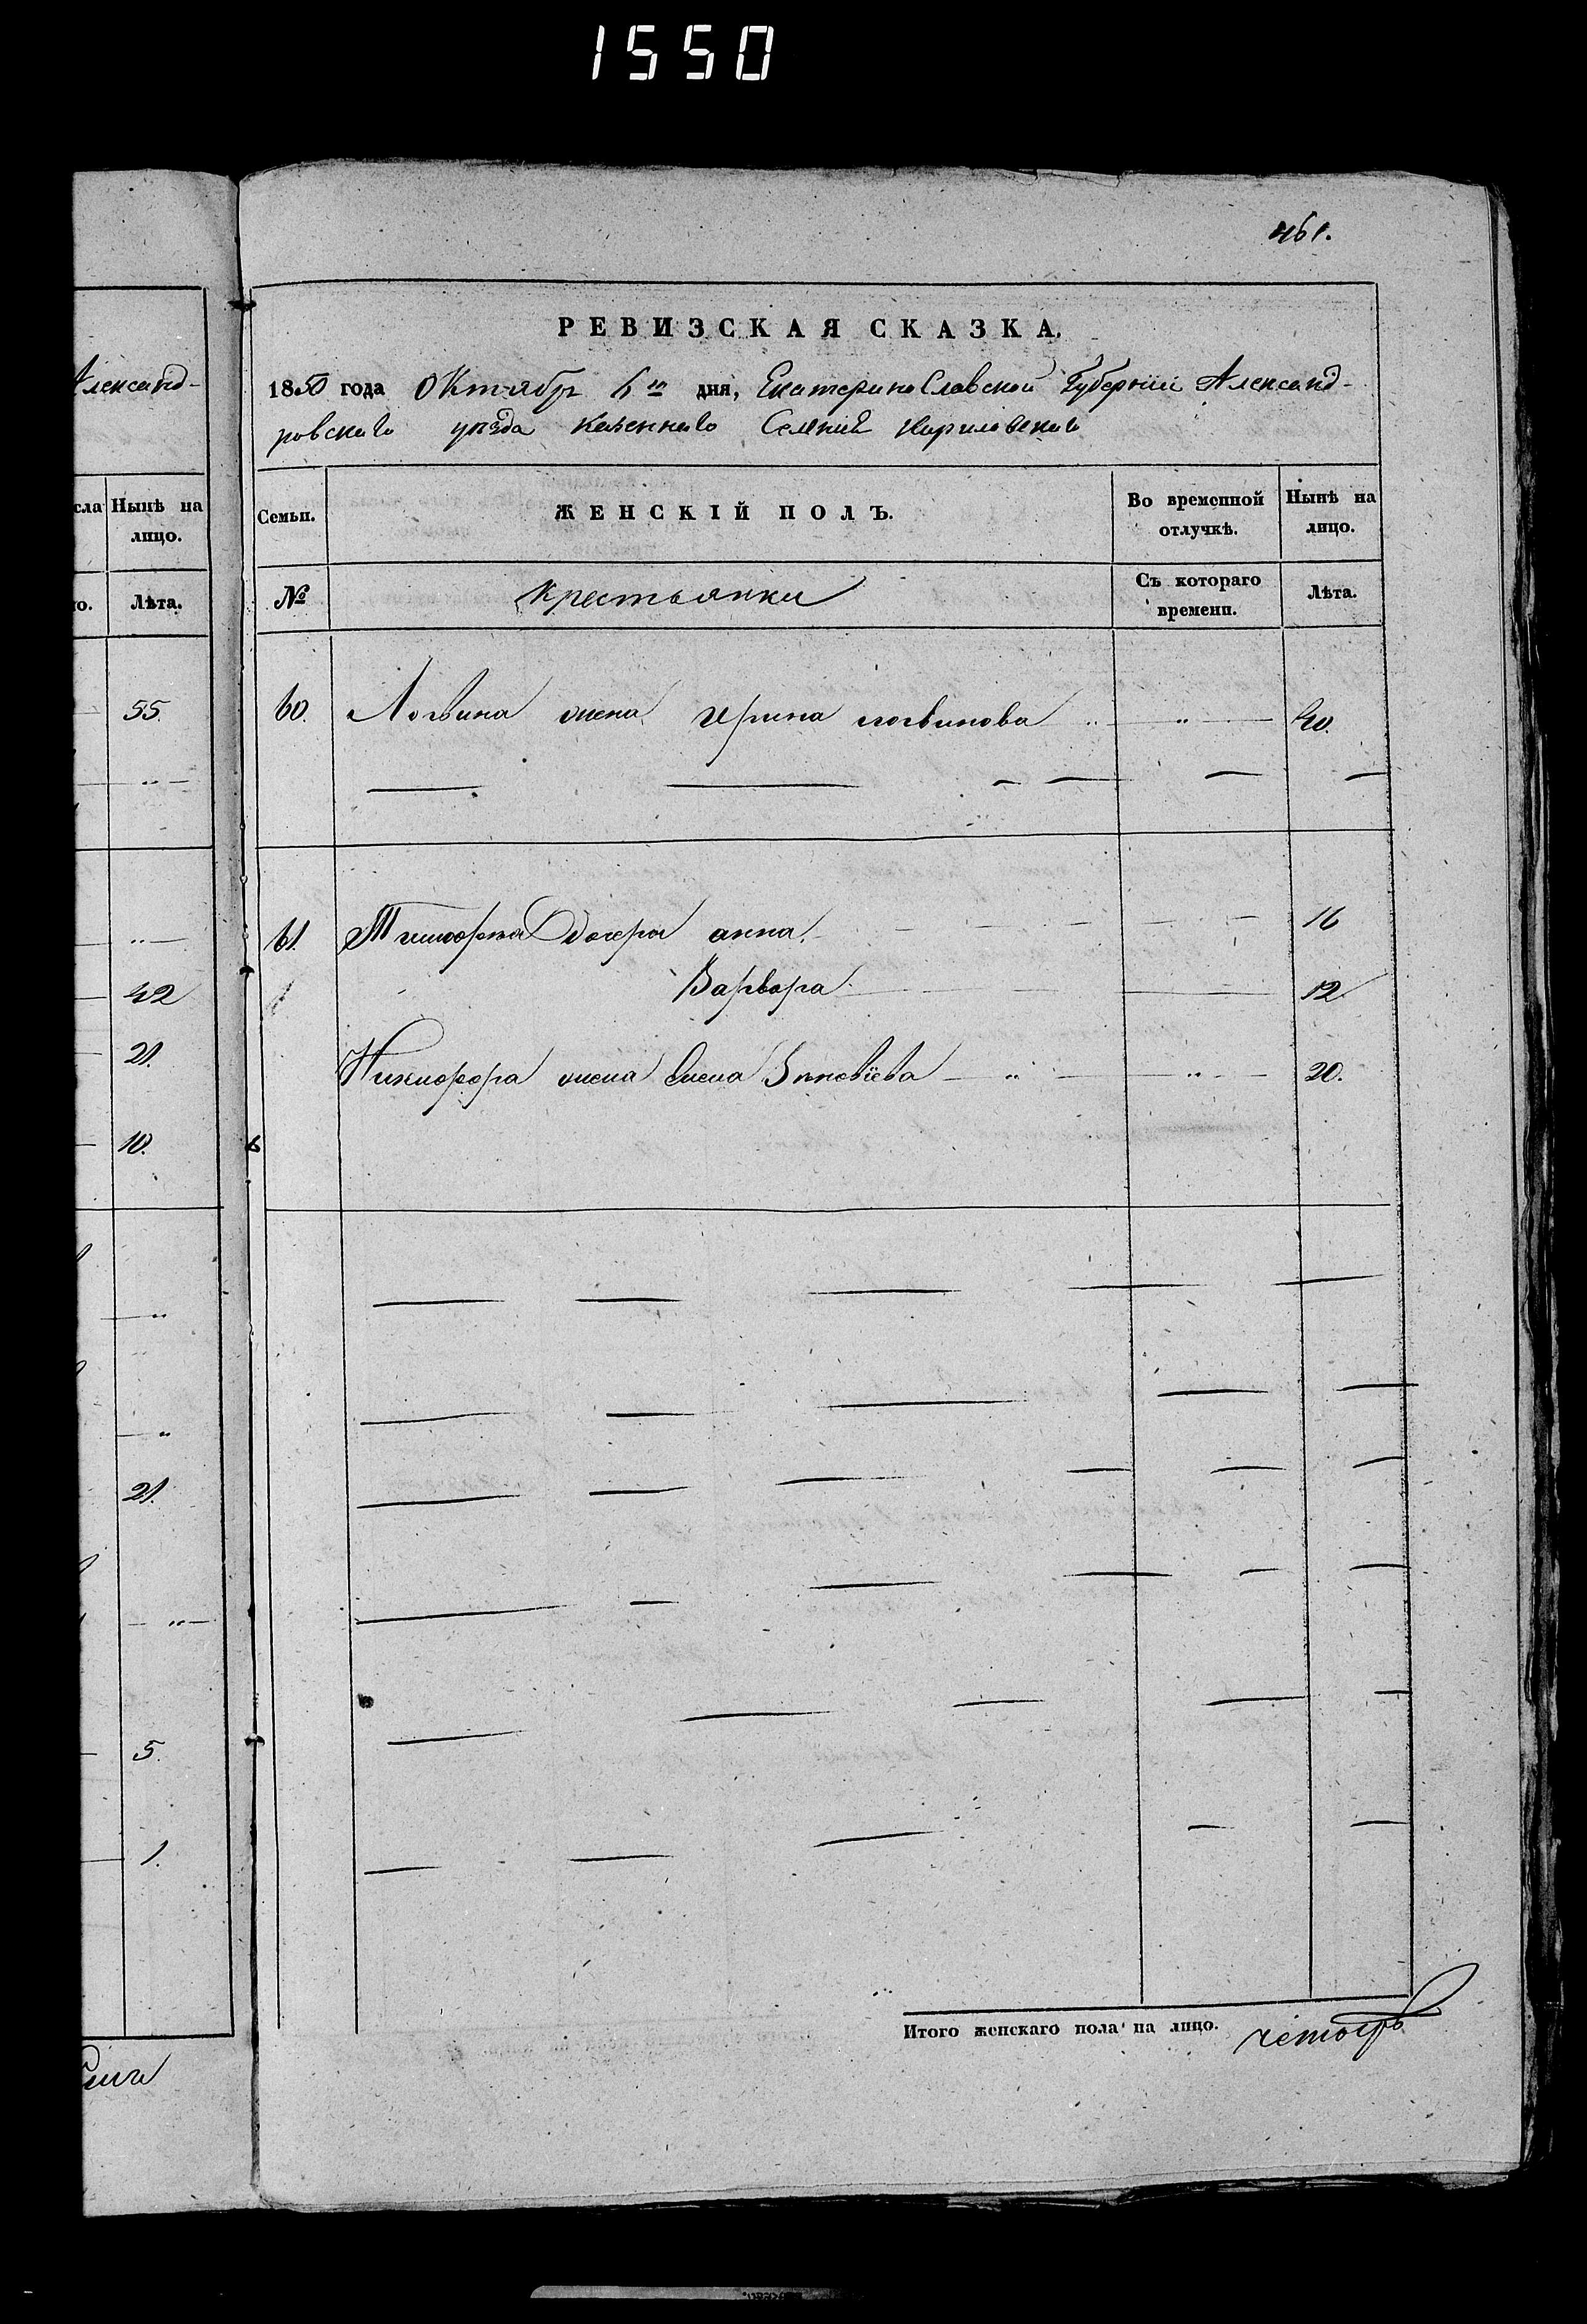 1550
461.
Александ-
сла Нынѣ на лицо.
о. Лѣта.
55.
42
21.
10.
21.
5.
1.
РЕВИЗСКАЯ СКАЗКА.
1850 года Октября 6го дня, Екатеринославской Губерніи Александ-
ровскаго уѣзда казеннаго Селенія Кириловскаго
Семьи. ЖЕНСКІЙ ПОЛЪ. Во временной отлучкѣ. Нынѣ на лицо.
№ Крестьянки Съ котораго времени. Лѣта.
60. Логвина жена Ирина логвинова " " 40.
61. Тимофея Дочери анна. 16
Варвара 12
Никифора жена Елена Зиновіева " " 20.
Итого женскаго пола на лицо. четыре